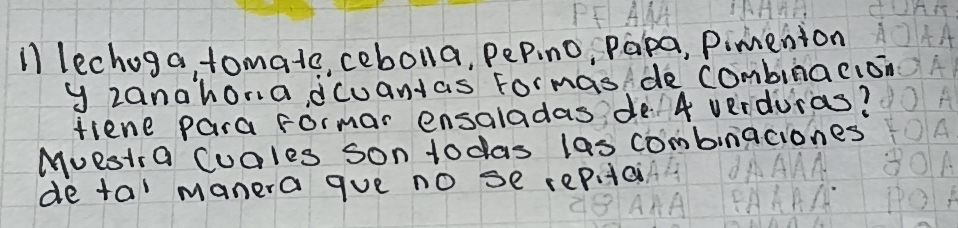 1) lechuga, tomate, cebolla, pepino, papa, pimenton
y zanahoria, ¿cuantas formas de combinación
tiene para formar ensaladas de 4 verduras?
Muestra cuales son todas las combinaciones
de tal manera que no se repita